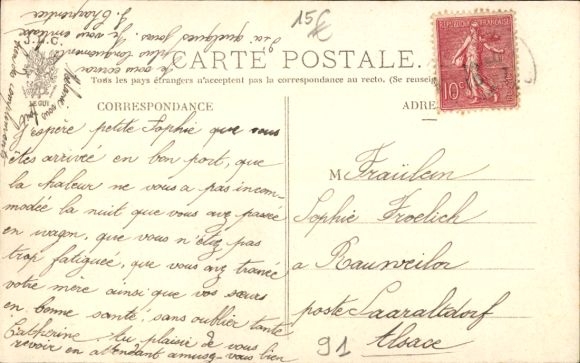 15€
J.H.C.
LE GUI
CARTE POSTALE
Tous les pays étrangers n'acceptent pas la correspondance au recto. (Se renseign
RÉPUBLIQUE FRANÇAISE
10c
CORRESPONDANCE
J'espère petite Sophie que vous
êtes arrivée en bon port, que
la chaleur ne vous a pas incom-
modée la nuit que vous avez passée
en wagon, que vous n'étiez pas
trop fatiguée, que vous avez trouvée
votre mère ainsi que vos sœurs
en bonne santé, sans oublier tante
Catherine. Au plaisir de vous
revoir en attendant amusez-vous bien
je vous écrirai plus longuement
d'ici quelques jours. Je vous embrasse
J. Charpentier
ADRE
M Fraülein
Sophie Froelich
a Rauweiler
poste Saaraltdorf
Alsace
91